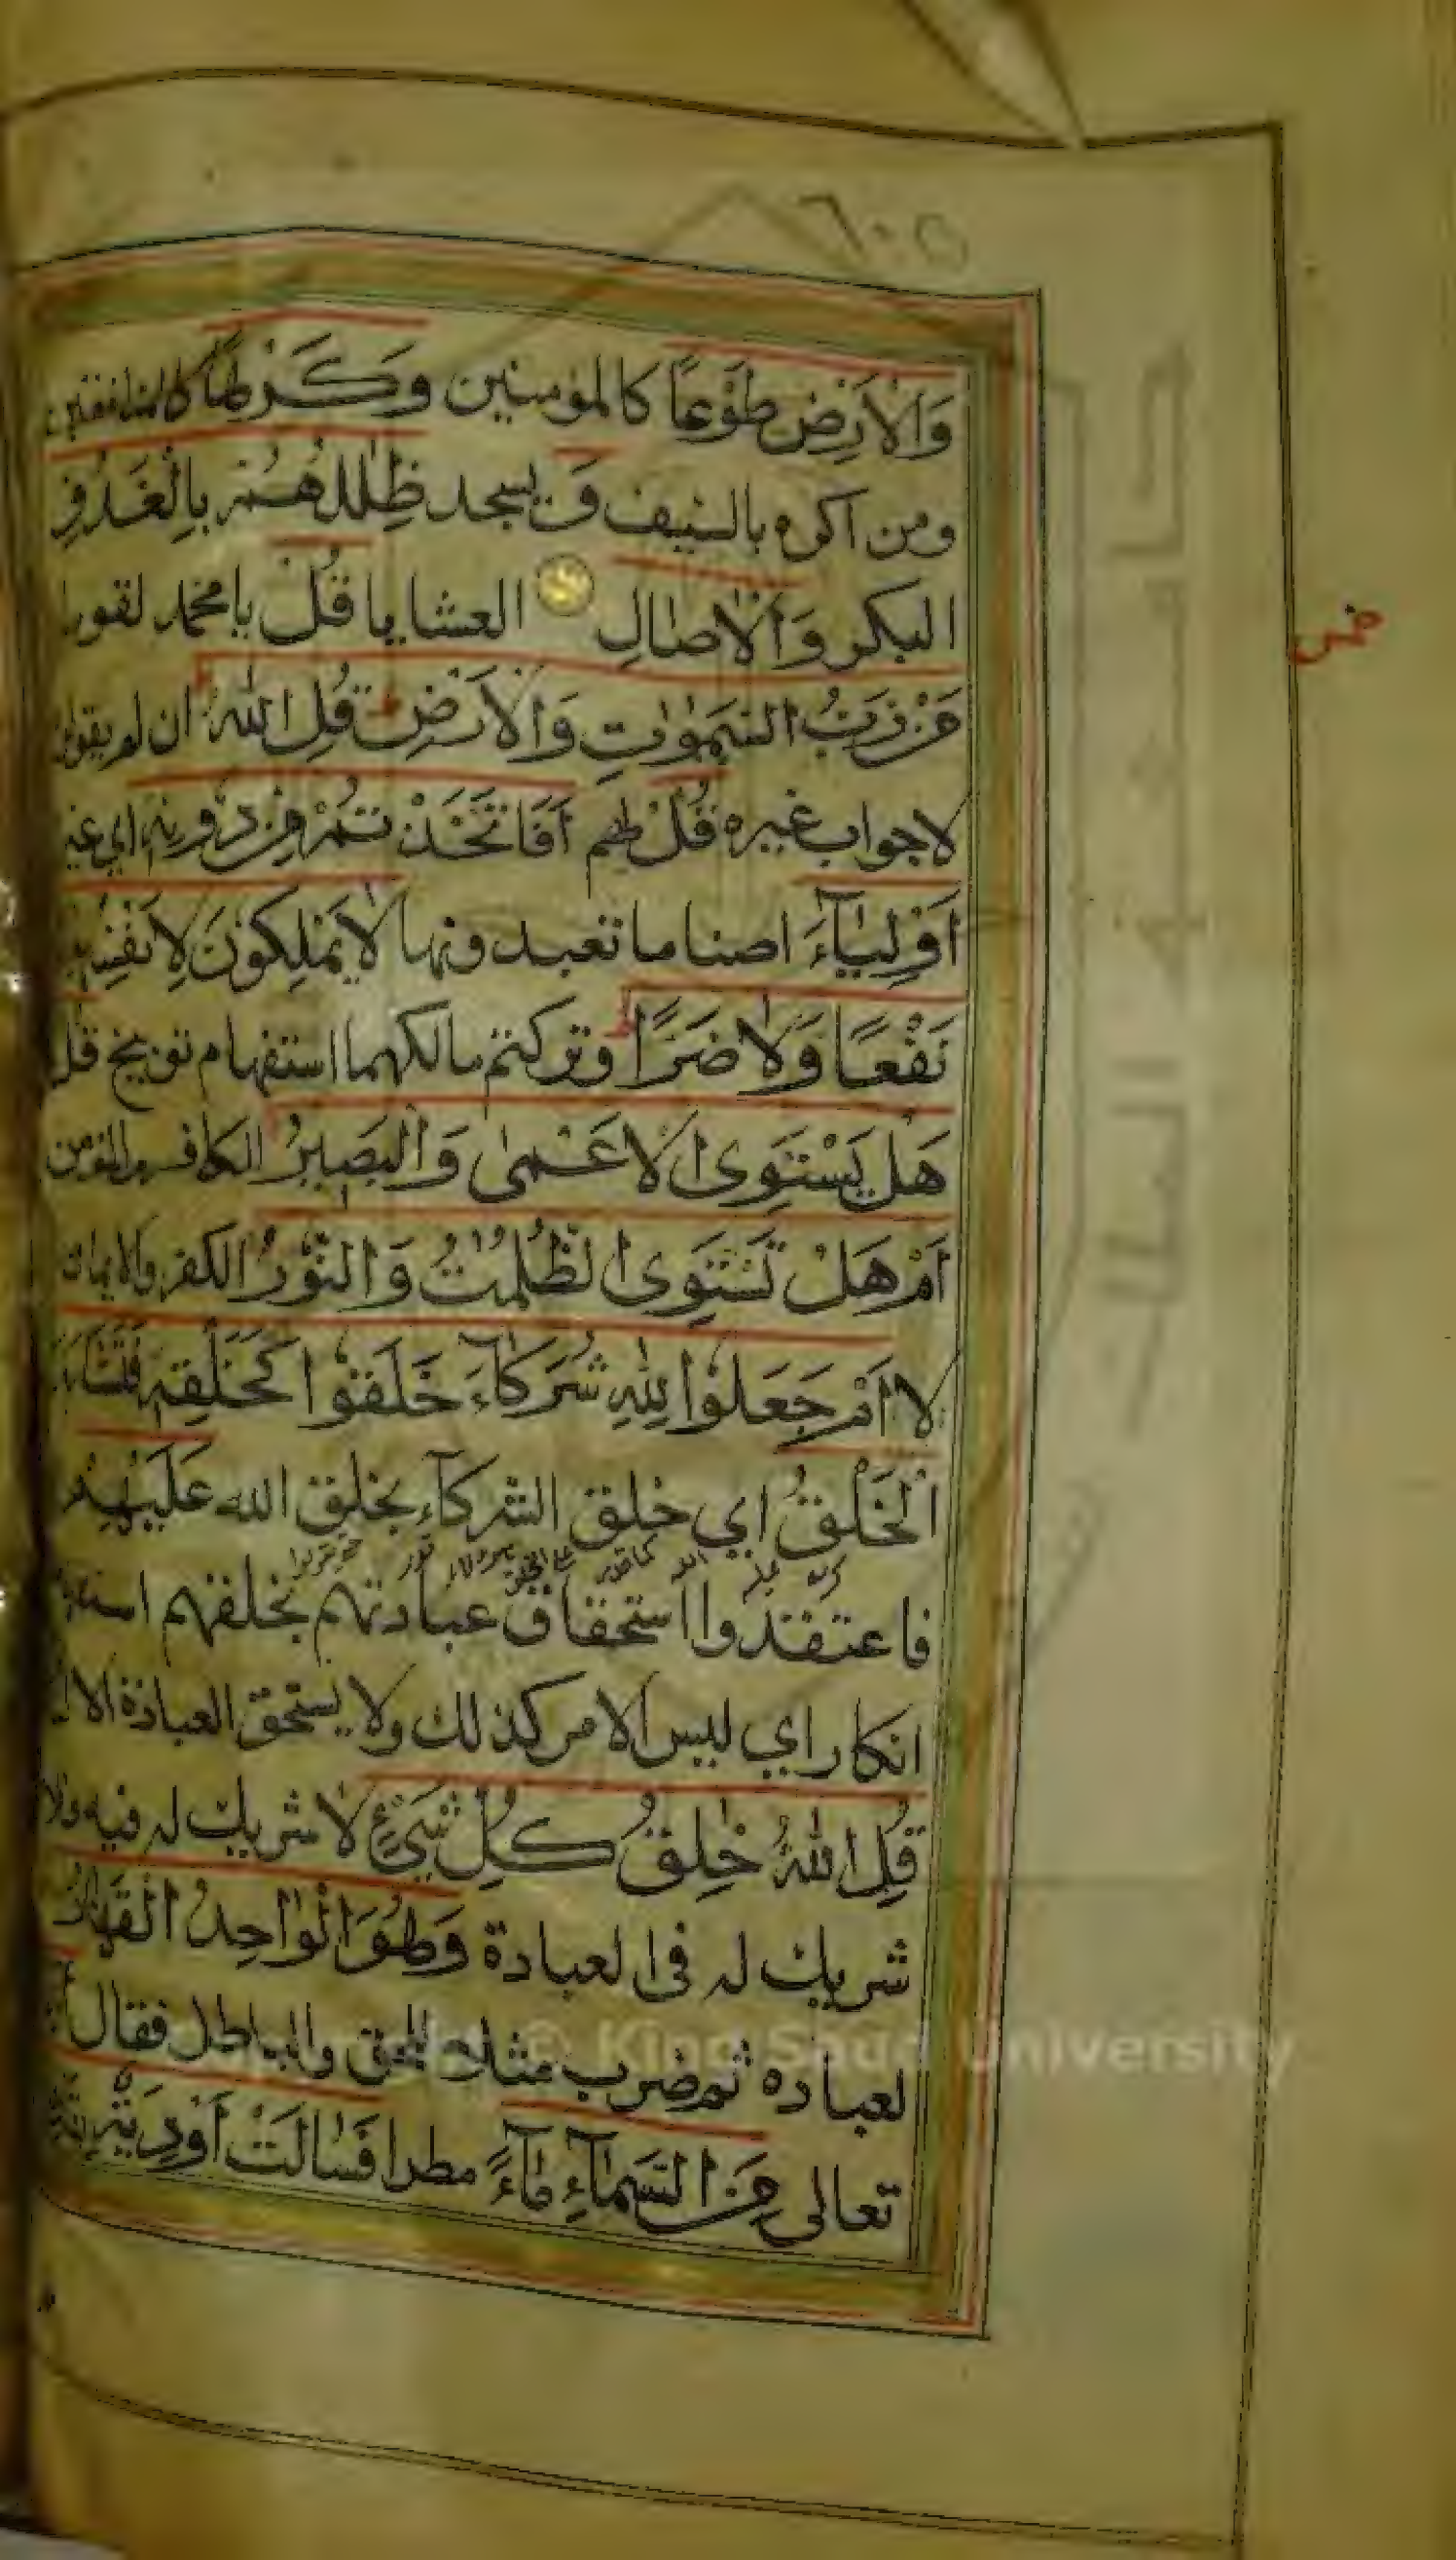 ٦٠٥
وَالْاَرْضِ طَوْعًا كالمؤمنين وَكَرْهًا كالمنافقين
ومن اكره بالسيف وَ يسجد ظِلٰلُهُمْ بِالْغُدُوِّ
البكر وَالْاٰصَالِ العشايا قُلْ يا محمد لقومك
مَنْ رَبُّ السَّمٰوٰتِ وَالْاَرْضِ قُلِ اللّٰهُ ان لم يقولوه
لا جواب غيره قُلْ لهم اَفَاتَّخَذْتُمْ مِنْ دُوْنِهٖ اي غيره
اَوْلِيَآءَ اصناما تعبدونها لَا يَمْلِكُوْنَ لِاَنْفُسِهِمْ
نَفْعًا وَلَا ضَرًّا وتركتم مالكهما استفهام توبيخ قل
هَلْ يَسْتَوِى الْاَعْمٰى وَالْبَصِيْرُ الكافر والمؤمن
اَمْ هَلْ تَسْتَوِى الظُّلُمٰتُ وَالنُّوْرُ الكفر والايمان
لا اَمْ جَعَلُوْا لِلّٰهِ شُرَكَآءَ خَلَقُوْا كَخَلْقِهٖ فَتَشَابَهَ
الْخَلْقُ اي خلق الشركآء بخلق الله عَلَيْهِمْ
فاعتقدوا استحقاق عبادتهم بخلقهم استفهام
انكار اي ليس الامر كذلك ولا يستحق العبادة الا
قُلِ اللّٰهُ خٰلِقُ كُلِّ شَيْءٍ لا شريك له فيه ولا
شريك له فى العبادة وَهُوَ الْوَاحِدُ الْقَهَّارُ
لعباده ثم ضرب مثلا للحق والباطل فقال
تعالى مِنَ السَّمَآءِ مَآءً مطرا فَسَالَتْ اَوْدِيَةٌ
© King Saud University